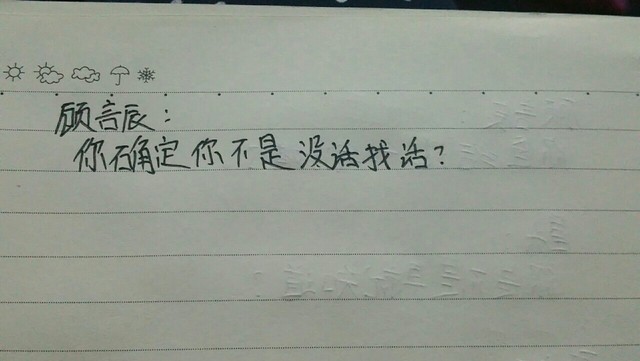 顾言辰：
你确定你不是没话找话？